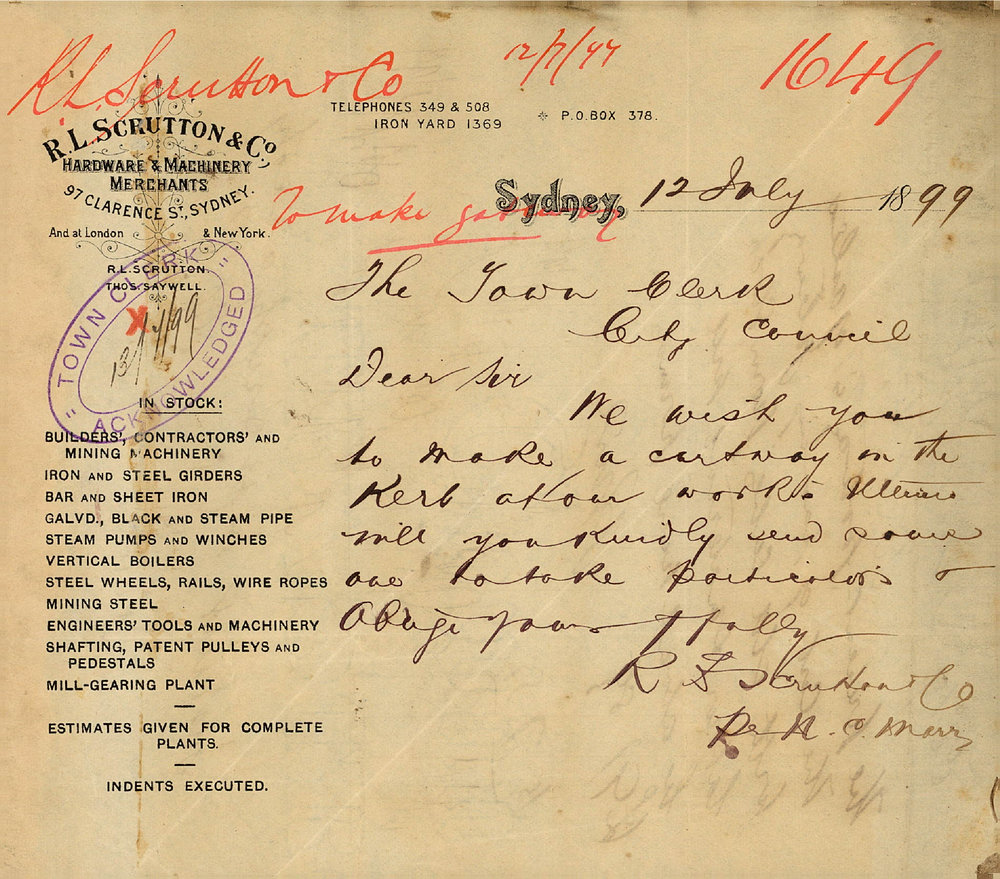 R.L. Scrutton & Co
12/7/99
1649
TELEPHONES 349 & 508
IRON YARD 1369
P.O.BOX 378.
R.L. SCRUTTON & Co,
HARDWARE & MACHINERY
MERCHANTS
97 CLARENCE ST, SYDNEY.
And at London & New York.
R.L. SCRUTTON.
THOS. SAYWELL.
To make
Sydney, 12 July 1899
TOWN CLERK
X
13/7/99
ACKNOWLEDGED
The Town Clerk
City Council
Dear Sir
We wish you
to make a cartway in the
Kerb at our works
will you kindly send some
one to take particulars &
Oblige yours ffully
R L Scrutton & Co
Per H. C. Marr
IN STOCK:
BUILDERS', CONTRACTORS' AND
MINING MACHINERY
IRON AND STEEL GIRDERS
BAR AND SHEET IRON
GALVD., BLACK AND STEAM PIPE
STEAM PUMPS AND WINCHES
VERTICAL BOILERS
STEEL WHEELS, RAILS, WIRE ROPES
MINING STEEL
ENGINEERS' TOOLS AND MACHINERY
SHAFTING, PATENT PULLEYS AND
PEDESTALS
MILL-GEARING PLANT
ESTIMATES GIVEN FOR COMPLETE
PLANTS.
INDENTS EXECUTED.